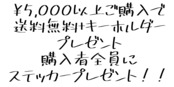 ¥5,000以上ご購入で
送料無料+キーホルダー
プレゼント
購入者全員に
ステッカープレゼント!!